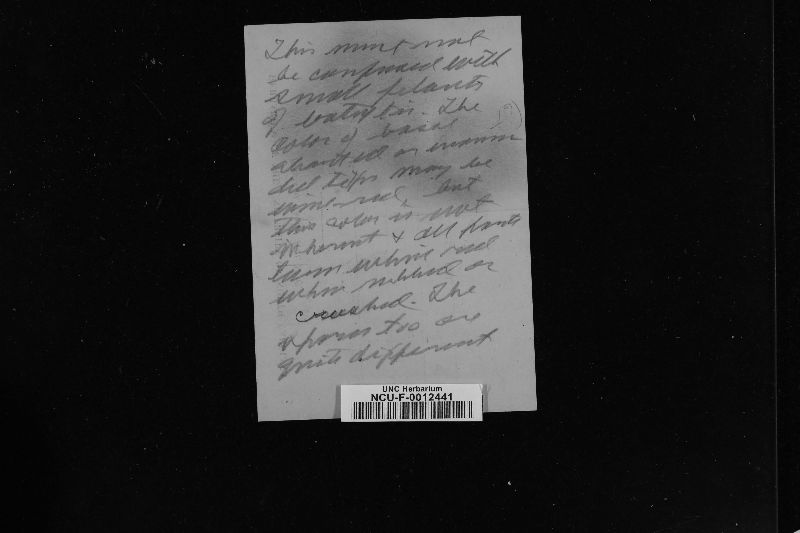 This must not
be confused with
small plants
of botrytis. The
color of basal
aborted or imma-
dead tips may be
wine-red, but
this color is not
inherent & all parts
turn wine red
when rubbed or
crushed. The
spores too are
quite different
UNC Herbarium
NCU-F-0012441